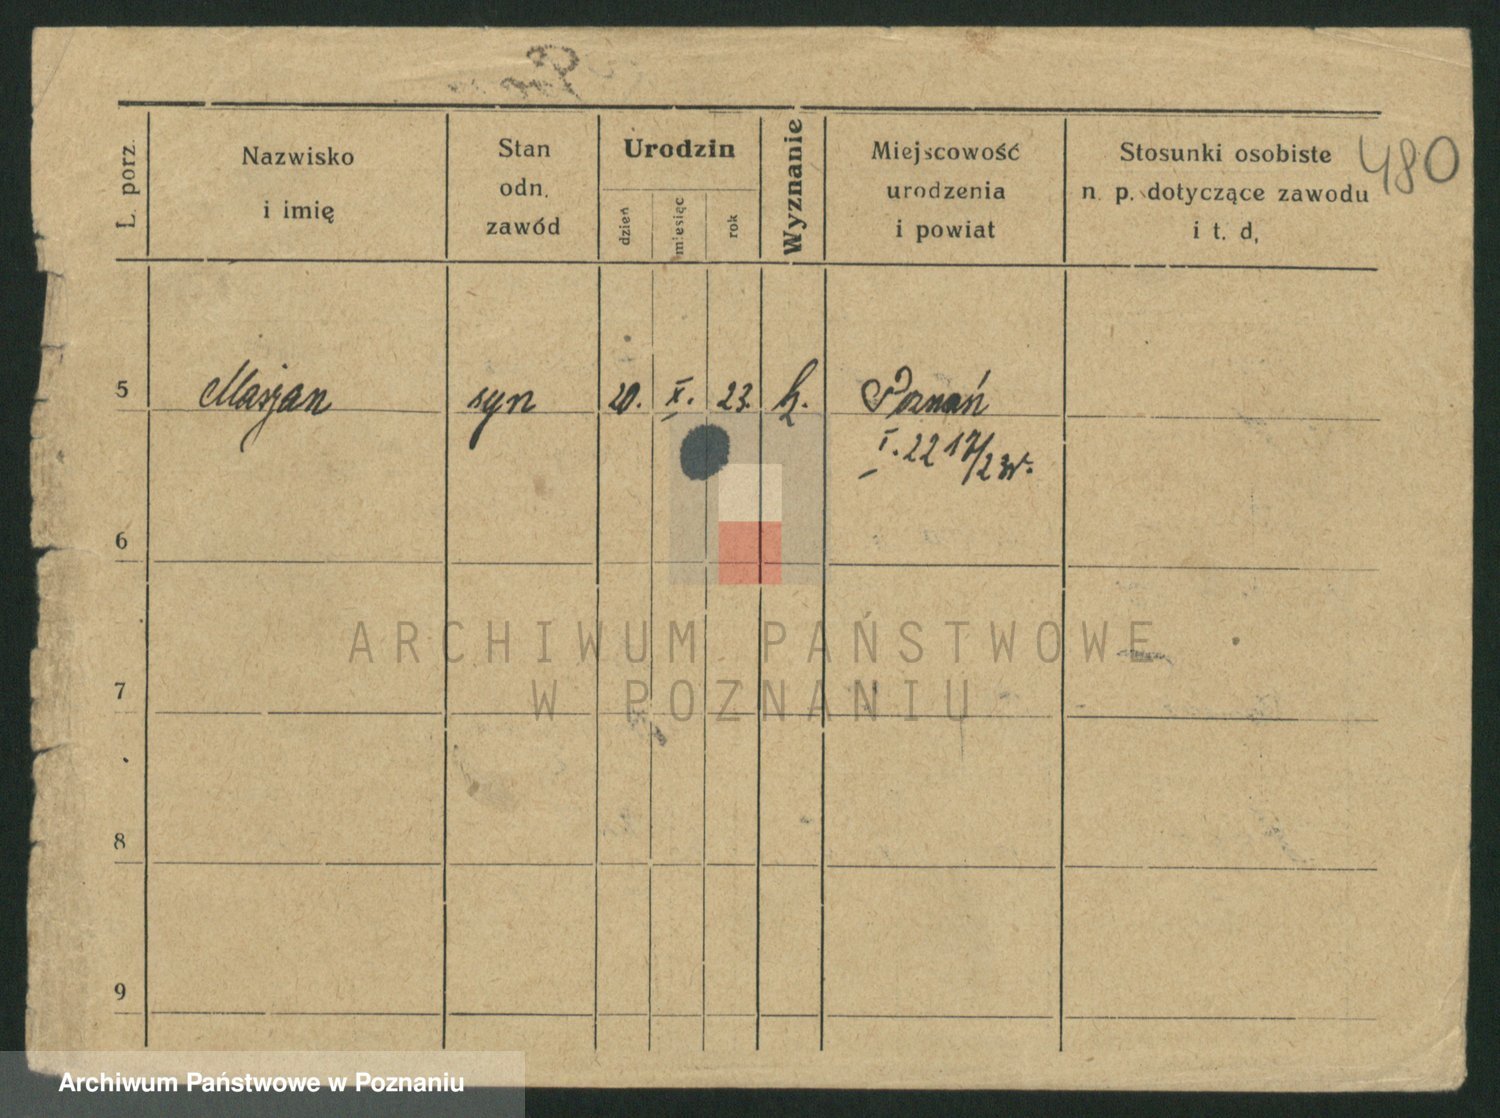 480
L. porz.
Nazwisko
i imię
Stan
odn.
zawód
Urodzin
dzień
miesiąc
rok
Wyznanie
Miejscowość
urodzenia
i powiat
Stosunki osobiste
n. p. dotyczące zawodu
i t. d,
5 Marjan syn 20. X. 23. k. Poznań
I. 22 17/23r.
6
7
8
9
ARCHIWUM PAŃSTWOWE
W POZNANIU
Archiwum Państwowe w Poznaniu